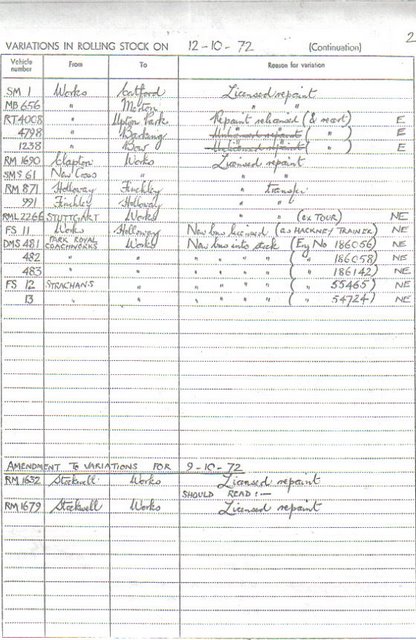 2
VARIATIONS IN ROLLING STOCK ON 12-10-72 (Continuation)
Vehicle number From To Reason for variation
SM 1 Works Catford Licensed repaint
MB 656 " Merton " "
RT 4008 " Upton Park Repaint relicensed (& recert) E
4798 " Barking Unlicensed repaint ( " ) E
1238 " Bow Unlicensed repaint ( " ) E
RM 1690 Clapton Works Licensed repaint
SMS 61 New Cross " " "
RM 871 Holloway Finchley " transfer
991 Finchley Holloway " "
RML 2266 STUTTGART Works " " (ex TOUR) NE
FS 11 Works Holloway New bus licensed (as HACKNEY TRAINER) NE
DMS 481 PARK ROYAL COACHWORKS Works New bus into stock (Eng No 186056) NE
482 " " " " " " ( " 186058) NE
483 " " " " " " ( " 186142) NE
FS 12 STRACHANS " " " " " ( " 55465) NE
13 " " " " " " ( " 54724) NE
AMENDMENT TO VARIATIONS FOR 9-10-72
RM 1632 Stockwell Works Licensed repaint
SHOULD READ :—
RM 1679 Stockwell Works Licensed repaint